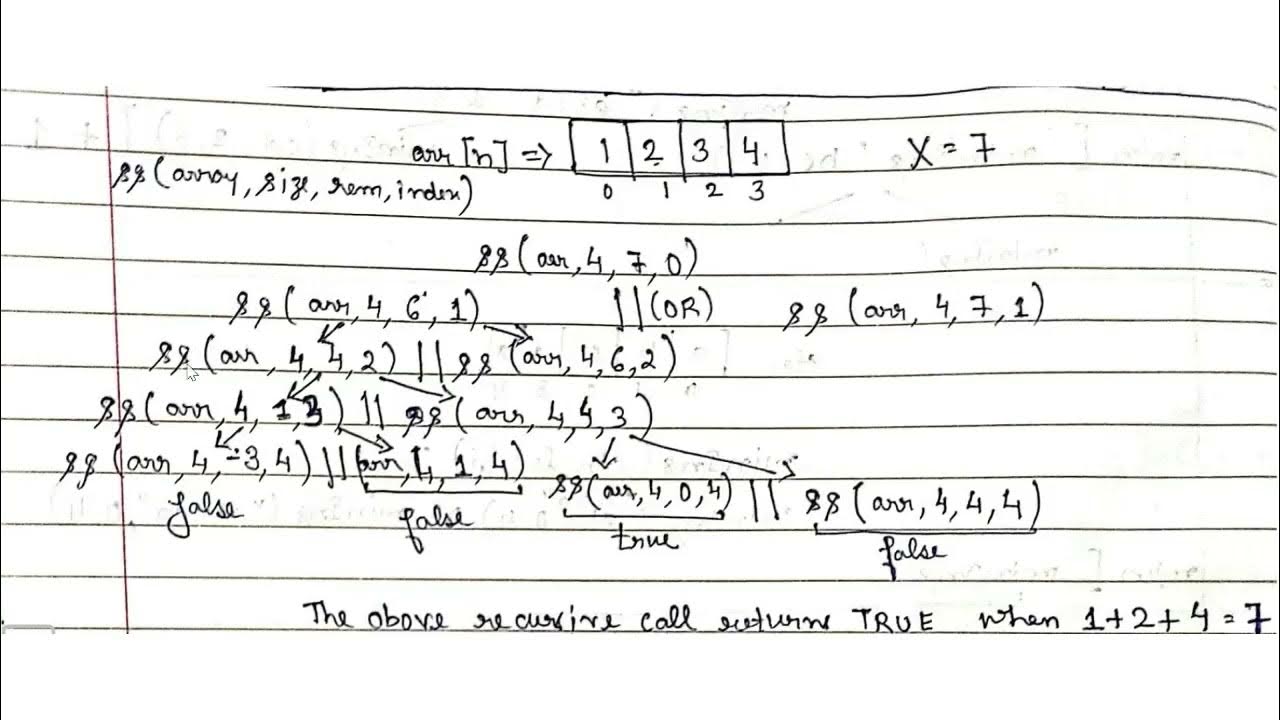 arr [n] => 1 2 3 4 X = 7
ss(array, size, rem, index) 0 1 2 3
ss(arr, 4, 7, 0)
ss(arr, 4, 6, 1) ||(OR) ss(arr, 4, 7, 1)
ss(arr, 4, 4, 2) || ss(arr, 4, 6, 2)
ss(arr, 4, 1, 3) || ss(arr, 4, 4, 3)
ss(arr, 4, -3, 4) || (arr, 4, 1, 4) ss(arr, 4, 0, 4) || ss(arr, 4, 4, 4)
false false true false
The above recursive call returns TRUE when 1+2+4=7